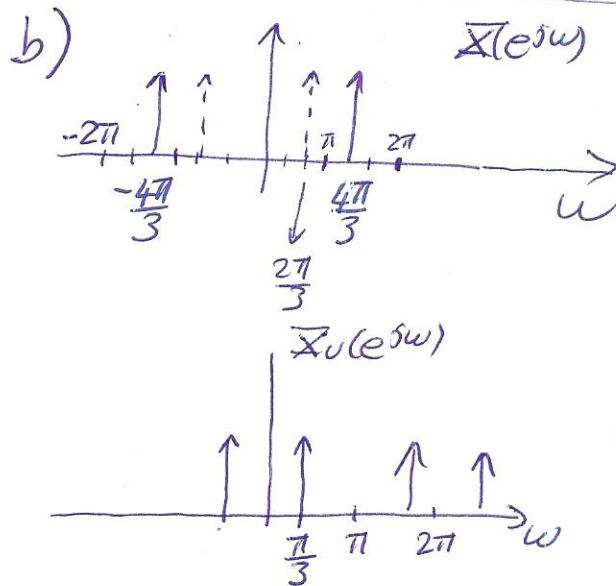 b)
X(e^jω)
-2π π 2π
-4π/3 4π/3 ω
2π/3
Xu(e^jω)
π/3 π 2π ω